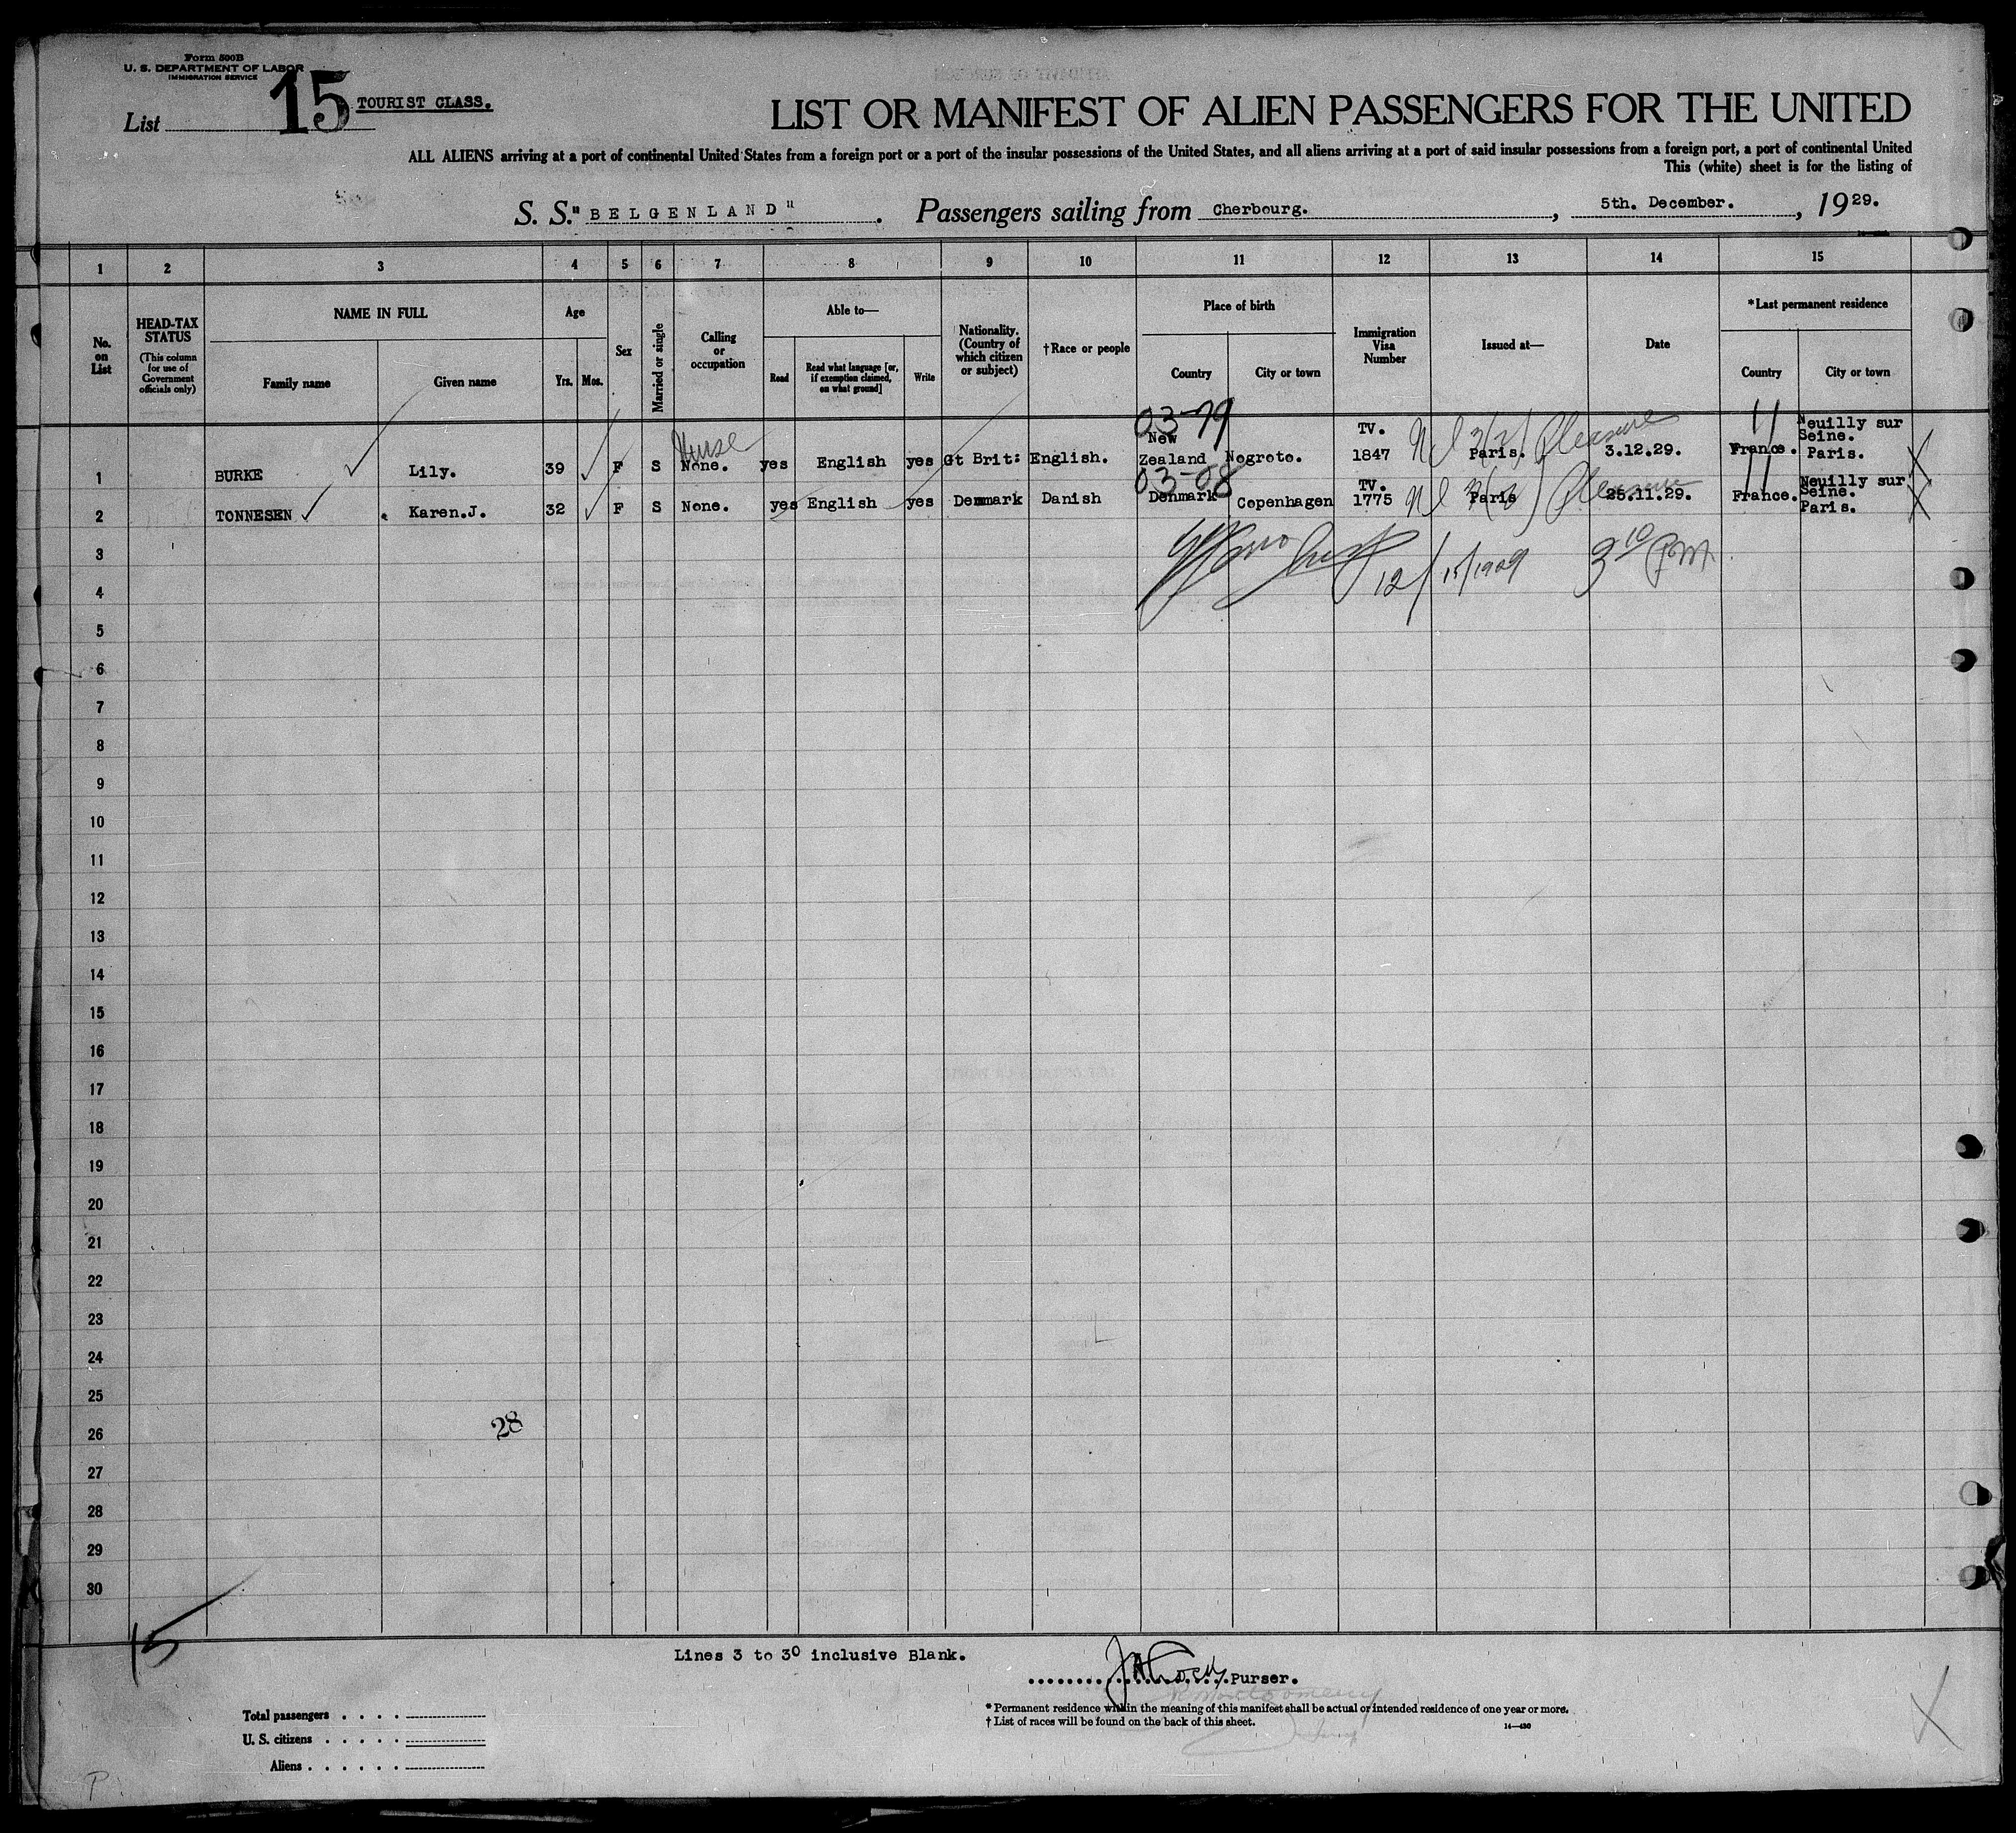 Form 500B
U. S. DEPARTMENT OF LABOR
IMMIGRATION SERVICE
List 15 TOURIST CLASS.
LIST OR MANIFEST OF ALIEN PASSENGERS FOR THE UNITED
ALL ALIENS arriving at a port of continental United States from a foreign port or a port of the insular possessions of the United States, and all aliens arriving at a port of said insular possessions from a foreign port, a port of continental United
This (white) sheet is for the listing of
S. S. "BELGENLAND". Passengers sailing from Cherbourg., 5th. December., 1929.
1 2 3 4 5 6 7 8 9 10 11 12 13 14 15
No. on List
HEAD-TAX STATUS
(This column for use of Government officials only)
NAME IN FULL
Family name Given name
Age
Yrs. Mos.
Sex
Married or single
Calling or occupation
Able to—
Read
Read what language [or, if exemption claimed, on what ground]
Write
Nationality. (Country of which citizen or subject)
†Race or people
Place of birth
Country City or town
Immigration Visa Number
Issued at—
Date
*Last permanent residence
Country City or town
03-79
Nurse
1 BURKE Lily. 39 F S None. yes English yes Gt Brit: English. New Zealand Nogroto. TV. 1847 Paris. Pleasure 3.12.29. 11 France. Neuilly sur Seine. Paris.
03-08
2 TONNESEN Karen.J. 32 F S None. yes English yes Denmark Danish Denmark Copenhagen TV. 1775 Paris Pleasure 25.11.29. 11 France. Neuilly sur Seine. Paris.
3
12/15/1929 3 10 PM
4
5
6
7
8
9
10
11
12
13
14
15
16
17
18
19
20
21
22
23
24
25
28
26
27
28
29
30
15
Lines 3 to 30 inclusive Blank.
Purser.
* Permanent residence within the meaning of this manifest shall be actual or intended residence of one year or more.
† List of races will be found on the back of this sheet. 14—430
Total passengers
U. S. citizens
Aliens
P